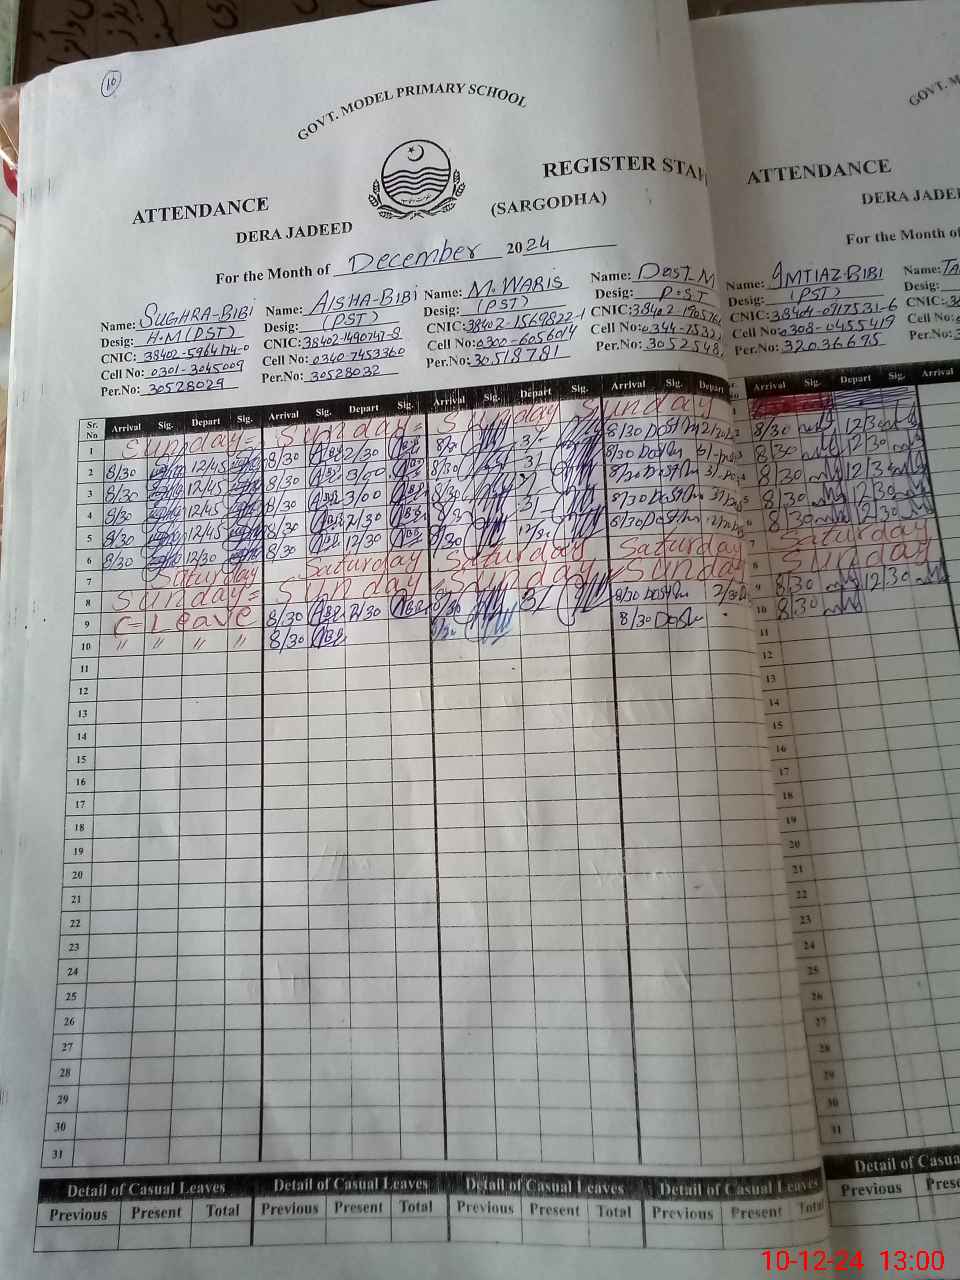 10
GOVT. MODEL PRIMARY SCHOOL
GOVT. M
ATTENDANCE REGISTER STAF
ATTENDANCE
DERA JADEED (SARGODHA)
DERA JADE
For the Month of December 2024
For the Month of
Name: SUGHRA-BIBI
Desig: H.M (PST)
CNIC: 38402-5964174-0
Cell No: 0301-3045009
Per.No: 30528029
Name: AISHA-BIBI
Desig: (PST)
CNIC: 38402-1490747-8
Cell No: 0340-7453360
Per.No: 30528032
Name: M.WARIS
(PST)
CNIC: 38402-1569822-1
Cell No: 0300-6056014
Per.No: 30518781
Name: Dost.M
Desig: P.S.T
CNIC: 38402-
Cell No: 0344-753
Per.No: 3052548
Name: IMTIAZ-BIBI
Desig: (PST)
CNIC: 38404-0717531-6
Cell No: 0308-0455419
Per.No: 32036695
Name: TA
Desig:
CNIC: 3
Cell No:
Per.No: 3
Sr. No Arrival Sig. Depart Sig. Arrival Sig. Depart Sig. Arrival Sig. Depart Sig. Arrival Sig. Depart
Arrival Sig. Depart Sig. Arrival
1 Sunday = Sunday = Sunday Sunday
2 8/30 12/45 8/30 2/30 8/30 3/- 8/30 Dost.M 2/30
8/30 12/30
3 8/30 12/45 8/30 3/00 8/30 3/- 8/30 Dost.M
8/30 12/30
4 8/30 12/45 8/30 3/00 8/30 8/30 Dost.M
8/30 12/30
5 8/30 12/45 8/30 2/30 8/30 3/- 8/30 Dost.M
8/30 12/30
6 8/30 12/30 8/30 12/30 8/30 8/30 Dost.M
8/30 12/30
7 Saturday Saturday Saturday Saturday
Saturday
8 Sunday = Sunday = Sunday = Sunday
Sunday
9 C-Leave 8/30 2/30 8/30 3/- 8/30 Dost.M 2/30
8/30 12/30
10 〃 〃 〃 〃 8/30 8/30 8/30 Dost.M
10 8/30
11
12
13
14
15
16
17
18
19
20
21
22
23
24
25
26
27
28
29
30
31
11
12
13
14
15
16
17
18
19
20
21
22
23
24
25
26
27
28
29
30
31
Detail of Casual Leaves Detail of Casual Leaves Detail of Casual Leaves Detail of Casual Leaves
Detail of Casua
Previous Present Total Previous Present Total Previous Present Total Previous Present Total
Previous Prese
10-12-24 13:00